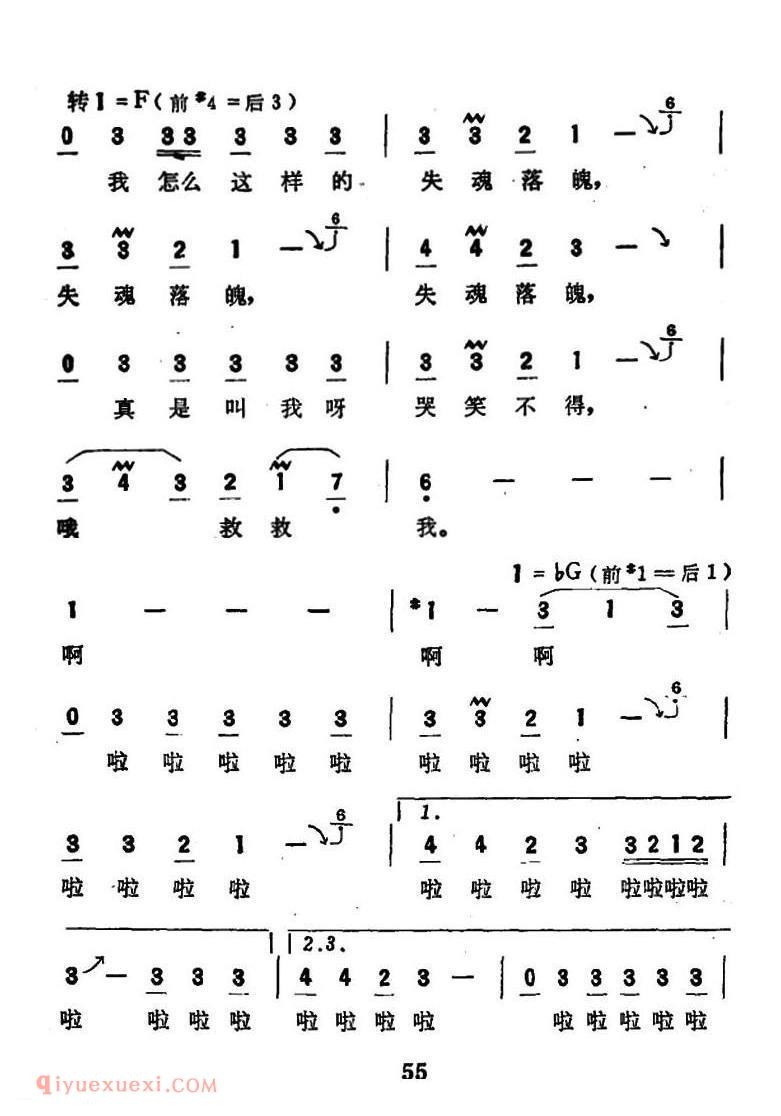 转1=F(前#4=后3)
0 3 3 3 3 3 3 | 3 3 2 1 — 6 |
我 怎么 这 样 的 失 魂 落 魄,
3 3 2 1 — 6 | 4 4 2 3 — |
失 魂 落 魄, 失 魂 落 魄,
0 3 3 3 3 3 | 3 3 2 1 — 6 |
真 是 叫 我 呀 哭 笑 不 得,
3 4 3 2 1 7 | 6 — — — |
哦 救 救 我。
1=bG(前#1=后1)
1 — — — | #1 — 3 1 3 |
啊 啊 啊
0 3 3 3 3 3 | 3 3 2 1 — 6 |
啦 啦 啦 啦 啦 啦 啦 啦 啦
1.
3 3 2 1 — 6 | 4 4 2 3 3 2 1 2 |
啦 啦 啦 啦 啦 啦 啦 啦 啦啦啦啦
2.3.
3 — 3 3 3 | 4 4 2 3 — | 0 3 3 3 3 3 |
啦 啦 啦 啦 啦 啦 啦 啦 啦 啦 啦 啦 啦
55
qiyuexuexi.com